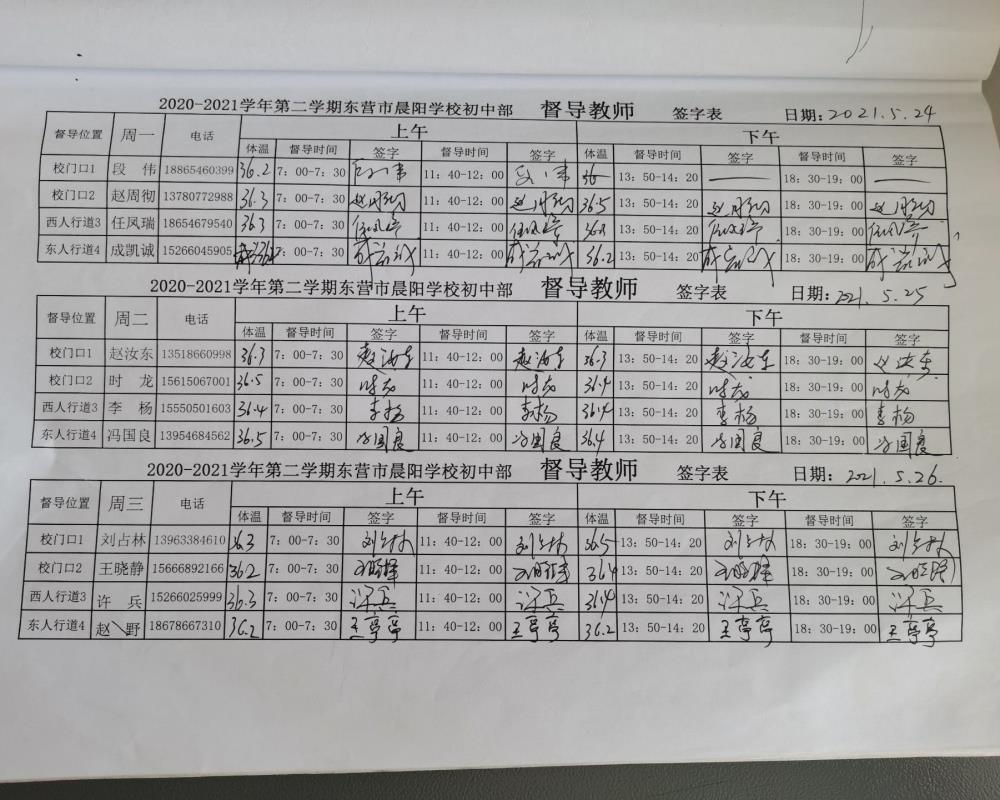 2020-2021学年第二学期东营市晨阳学校初中部 督导教师 签字表 日期：2021.5.24
督导位置 周一 电话 上午 下午
体温 督导时间 签字 督导时间 签字 体温 督导时间 签字 督导时间 签字
校门口1 段伟 18865460399 36.2 7：00-7：30 段伟 11：40-12：00 段伟 36 13：50-14：20 — 18：30-19：00 —
校门口2 赵周彻 13780772988 36.3 7：00-7：30 赵周彻 11：40-12：00 赵周彻 36.5 13：50-14：20 赵周彻 18：30-19：00 赵周彻
西人行道3 任凤瑞 18654679540 36.3 7：00-7：30 任凤瑞 11：40-12：00 任凤瑞 13：50-14：20 任凤瑞 18：30-19：00 任凤瑞
东人行道4 成凯诚 15266045905 7：00-7：30 成凯诚 11：40-12：00 成凯诚 36.2 13：50-14：20 成凯诚 18：30-19：00 成凯诚
2020-2021学年第二学期东营市晨阳学校初中部 督导教师 签字表 日期：2021.5.25
督导位置 周二 电话 上午 下午
体温 督导时间 签字 督导时间 签字 体温 督导时间 签字 督导时间 签字
校门口1 赵汝东 13518660998 36.3 7：00-7：30 赵汝东 11：40-12：00 赵汝东 36.3 13：50-14：20 赵汝东 18：30-19：00 赵汝东
校门口2 时龙 15615067001 36.5 7：00-7：30 时龙 11：40-12：00 时龙 36.4 13：50-14：20 时龙 18：30-19：00 时龙
西人行道3 李杨 15550501603 36.4 7：00-7：30 李杨 11：40-12：00 李杨 36.4 13：50-14：20 李杨 18：30-19：00 李杨
东人行道4 冯国良 13954684562 36.5 7：00-7：30 冯国良 11：40-12：00 冯国良 36.4 13：50-14：20 冯国良 18：30-19：00 冯国良
2020-2021学年第二学期东营市晨阳学校初中部 督导教师 签字表 日期：2021.5.26.
督导位置 周三 电话 上午 下午
体温 督导时间 签字 督导时间 签字 体温 督导时间 签字 督导时间 签字
校门口1 刘占林 13963384610 36.3 7：00-7：30 刘占林 11：40-12：00 刘占林 36.5 13：50-14：20 刘占林 18：30-19：00 刘占林
校门口2 王晓静 15666892166 36.2 7：00-7：30 王晓静 11：40-12：00 王晓静 36.4 13：50-14：20 王晓静 18：30-19：00 王晓静
西人行道3 许兵 15266025999 36.3 7：00-7：30 许兵 11：40-12：00 许兵 36.4 13：50-14：20 许兵 18：30-19：00 许兵
东人行道4 赵野 18678667310 36.2 7：00-7：30 王亭亭 11：40-12：00 王亭亭 36.2 13：50-14：20 王亭亭 18：30-19：00 王亭亭